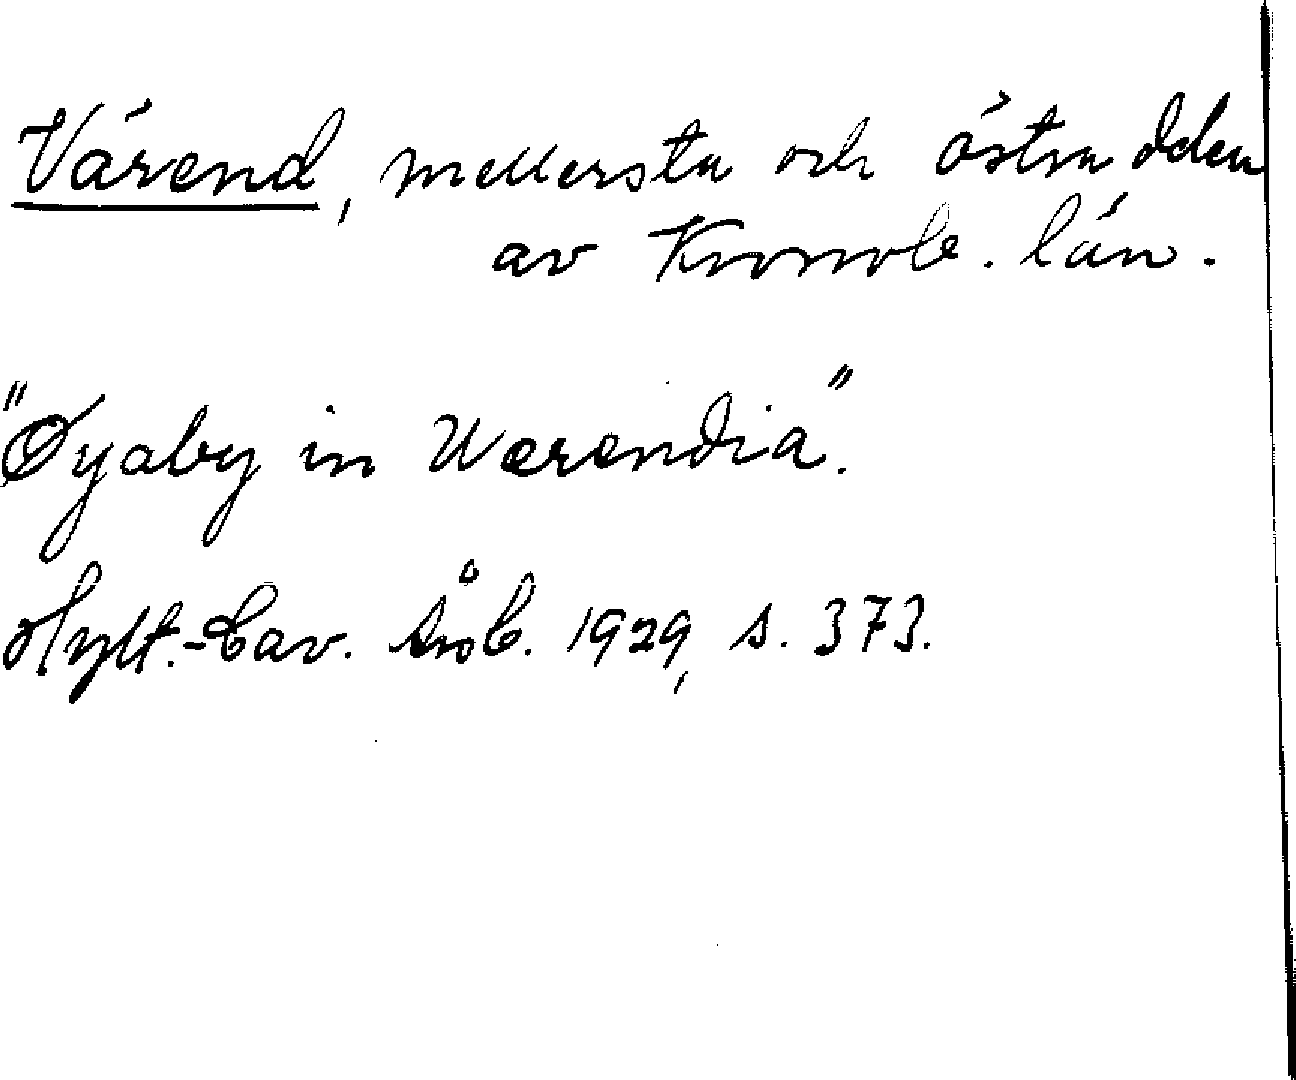 Värend, mellersta och östra delen
av Kronob. län.
"Øyaby in Wærendia".
Hylt.-Cav. årsb. 1929, s. 373.